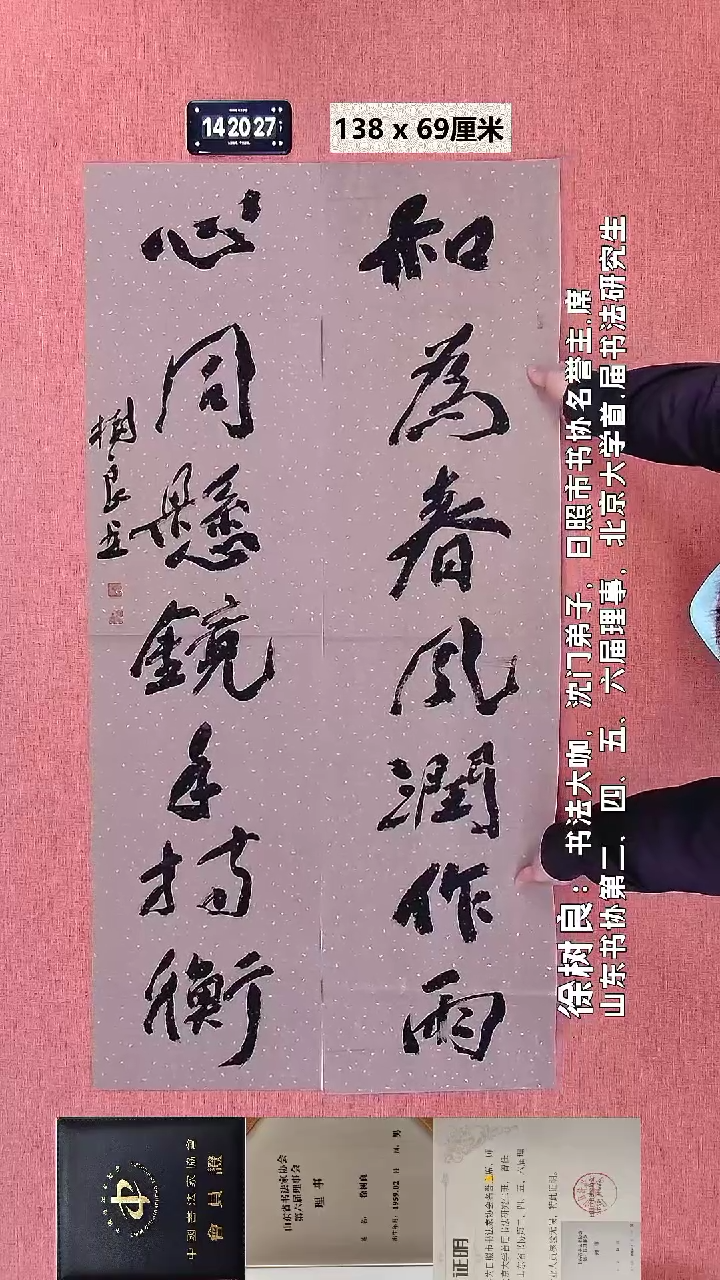 14 20 27
138 x 69厘米
和為春風潤作雨
心同懸鏡手持衡
樹良書
徐树良：书法大咖，沈门弟子，日照市书协名誉主.席
山东书协第二、四、五、六届理事，北京大学首.届书法研究生
中國書法家協會
會員證
山东省书法家协会
第六届理事会
理 书
徐树良
1959.02
男
证明